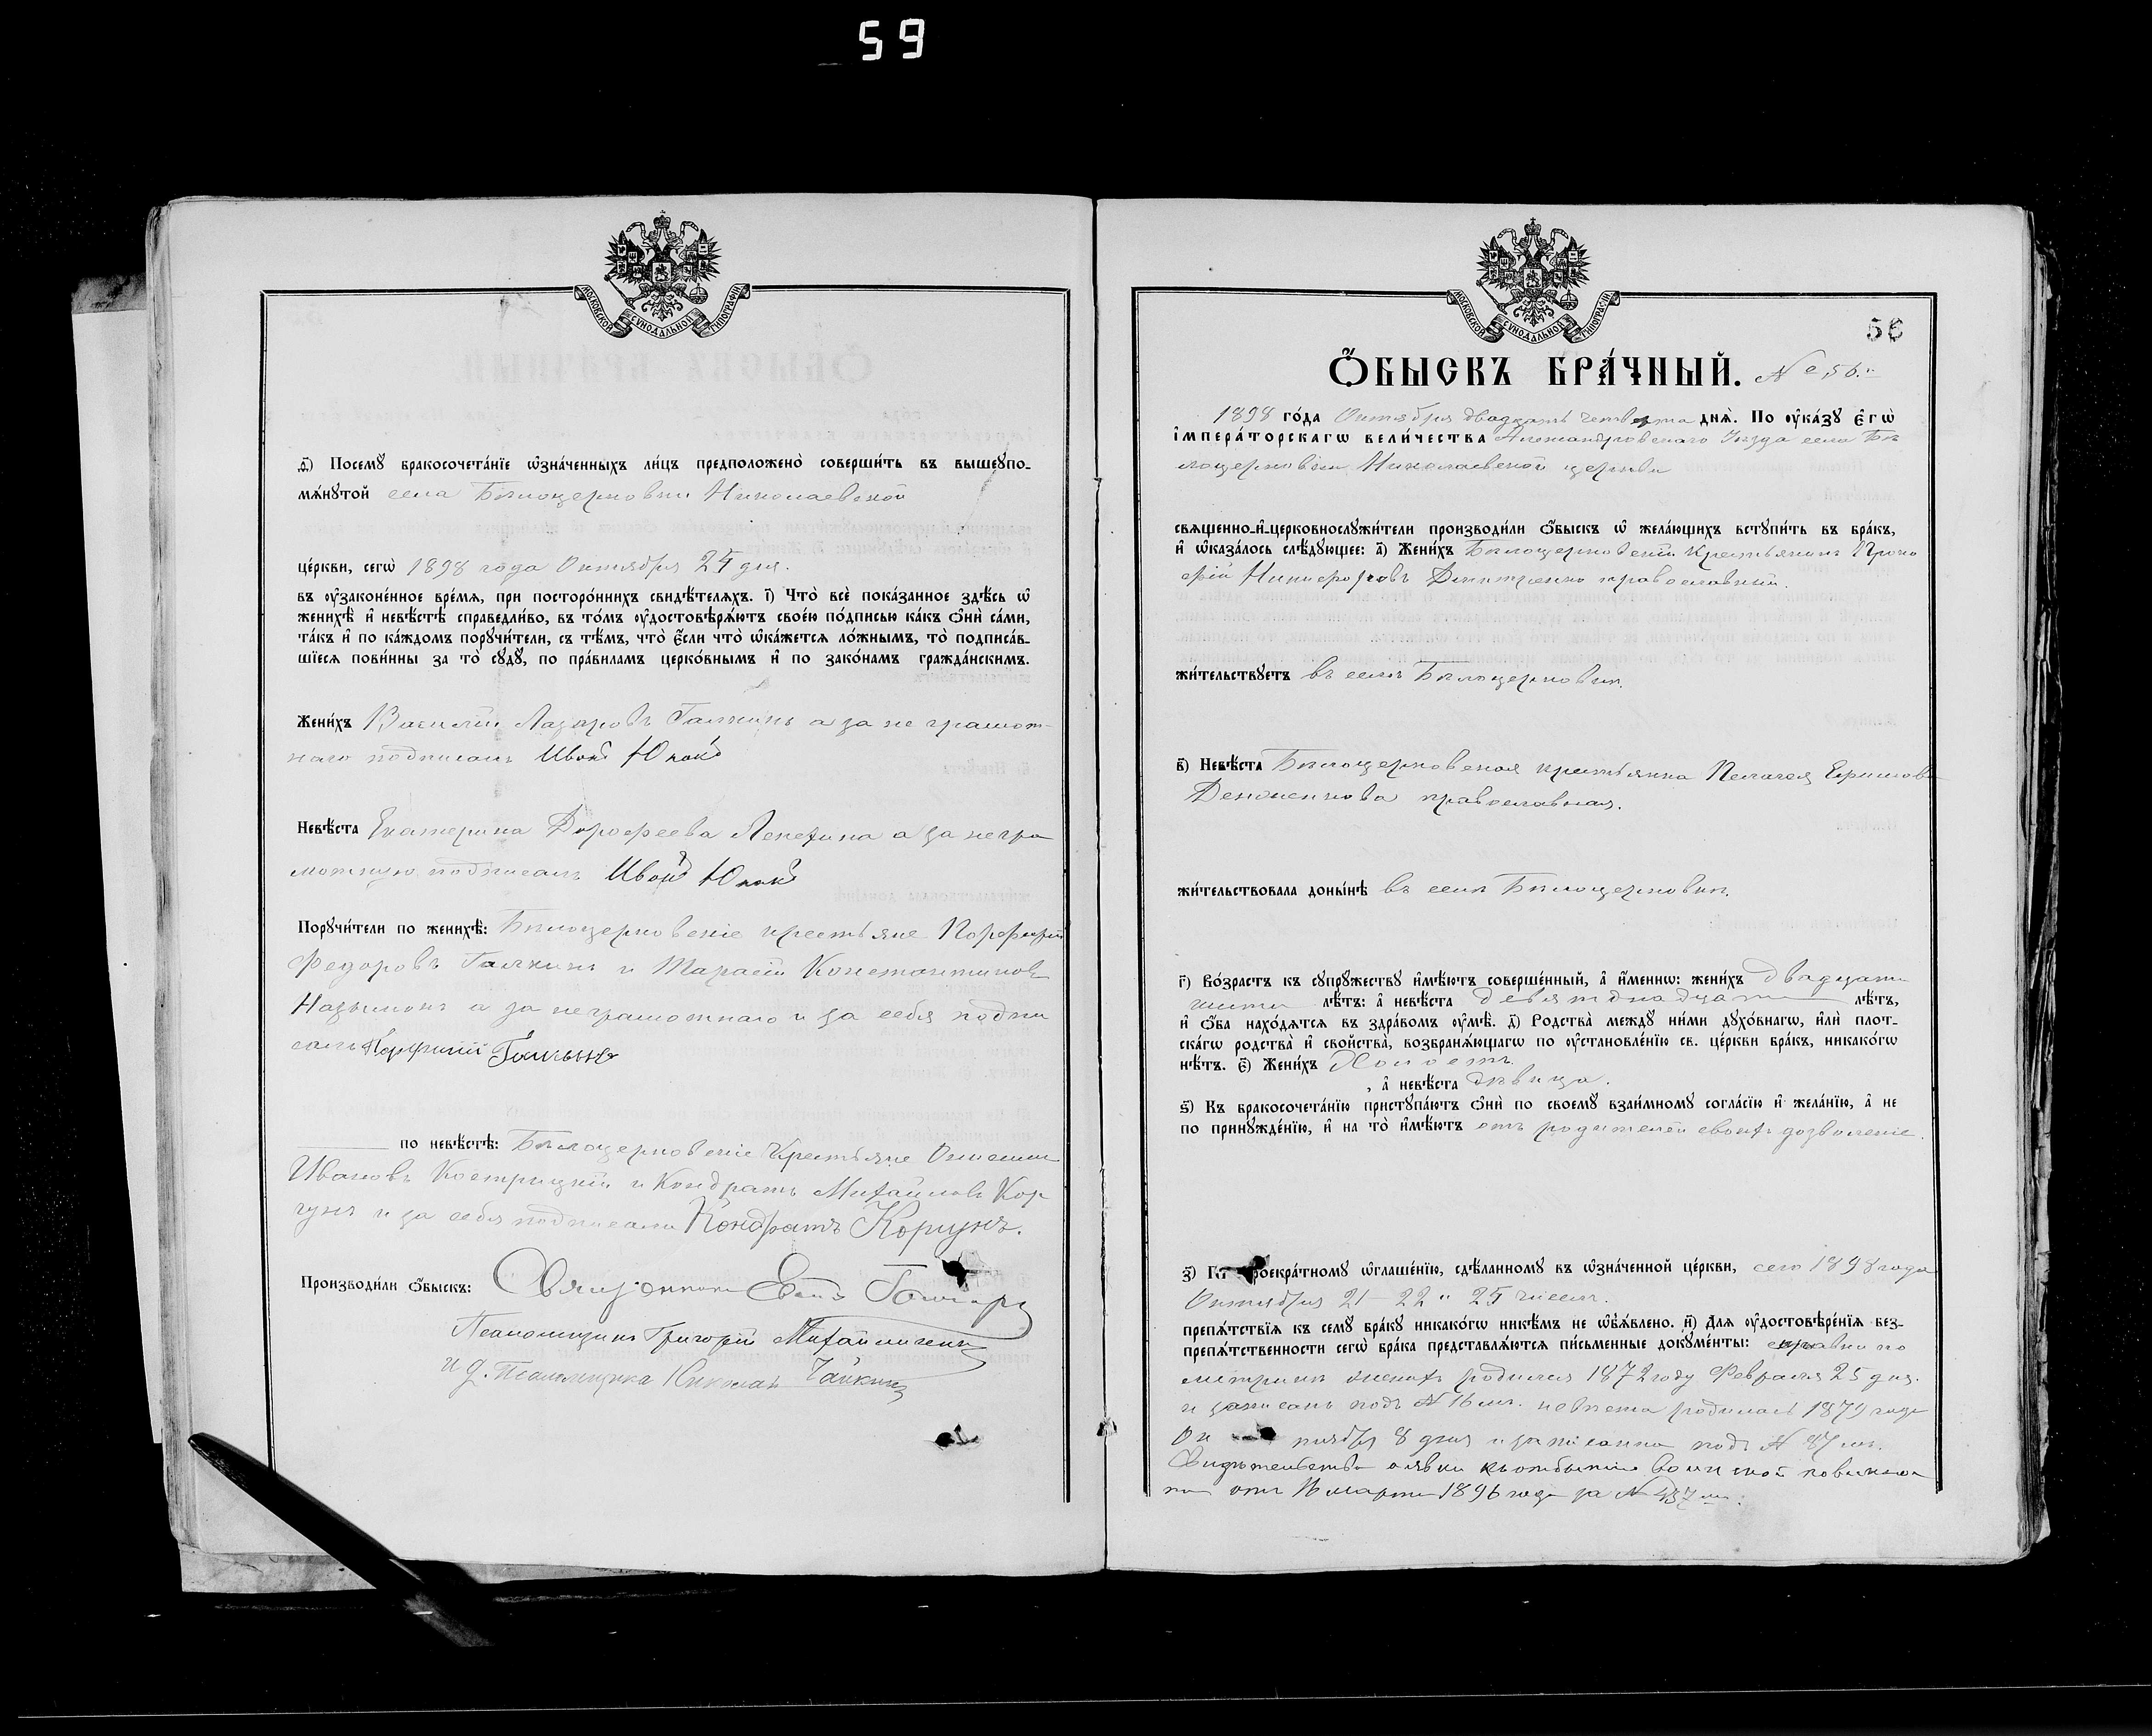 59
МОСКОВСКОЙ СУНОДАЛЬНОЙ ТИПОГРАФІИ
ѳ҃) Посемꙋ̀ бракосочета́нїе ѡ҆зна́ченныхъ ли́цъ предположено̀ соверши́ть въ вышеꙋпо-
мѧ́нꙋтой села Бѣлоцерковки Николаевской
це́ркви, сегѡ̀ 1898 года Октября 25 дня.
въ ᲂу҆зако́ненное вре́мѧ, при посторо́ннихъ свидѣ́телѧхъ. і҃) Что̀ всѐ пока́занное здѣ́сь ѡ҆
женихѣ̀ и҆ невѣ́стѣ справедли́во, въ то́мъ ᲂу҆достовѣрѧ́ютъ свое́ю по́дписью ка́къ ѻ҆нѝ са́ми,
та́къ и҆ по ка́ждомъ порꙋчи́тели, съ тѣ́мъ, что̀ є҆́сли что̀ ѡ҆ка́жетсѧ ло́жнымъ, то̀ подписа́в-
шїесѧ пови́нны за то̀ сꙋдꙋ̀, по пра́виламъ церко́внымъ и҆ по зако́намъ гражда́нскимъ.
Жени́хъ Василій Лазаровъ Галкинъ а за не грамот-
наго подписалъ Иванъ Юнакъ
Невѣ́ста Екатерина Дорофеева а за негра
мотную подписалъ Иванъ Юнакъ
Порꙋчи́тели по женихѣ̀: Бѣлоцерковскіе крестьяне Порфирій
Федоровъ Галкинъ и Тарасій Константиновъ
а за неграмотнаго и за себя подпи
салъ Порфирий Галкинъ
по невѣ́стѣ: Бѣлоцерковскіе Крестьяне
Ивановъ Кострицкій и Кондратъ Михайловъ Кор
гунъ и за себя подписали Кондратъ Коргунъ.
Производи́ли ѻ҆́быскъ: Священникъ
Псаломщикъ Григорій Михайличенко
И д. Псаломщика Николай Чайкинъ
МОСКОВСКОЙ СУНОДАЛЬНОЙ ТИПОГРАФІИ
56
Ѻ҆́БЫСКЪ БРА́ЧНЫЙ. № 56.
1898 го́да Октября двадцать четверта днѧ̀. По ᲂу҆ка́зꙋ Є҆гѡ̀
і҆мпера́торскагѡ вели́чества Александровскаго Уезда села Бѣ
лоцерковки Николаевской церкви
свѧщенно-и҆-церковнослꙋжи́тели производи́ли ѻ҆́быскъ ѡ҆ жела́ющихъ встꙋпи́ть въ бра́къ,
и҆ ѡ҆каза́лось слѣ́дꙋющее: а҃) Жени́хъ Бѣлоцерковскій крестьянинъ Проко
фій Никифоровъ Дмитренко православный.
жи́тельствꙋетъ въ селѣ Бѣлоцерковкѣ.
в҃) Невѣ́ста Бѣлоцерковская крестьянка Пелагея Ефимов
православная.
жи́тельствовала доны́нѣ въ селѣ Бѣлоцерковкѣ.
г҃) Во́зрастъ къ сꙋпрꙋ́жествꙋ и҆мѣ́ютъ соверше́нный, а҆ и҆́меннѡ: жени́хъ двадцати
шести лѣ́тъ: а҆ невѣ́ста девятнадцати лѣ́тъ,
и҆ ѻ҆́ба нахо́дѧтсѧ въ здра́вомъ ᲂу҆мѣ̀. д҃) Родства̀ междꙋ ни́ми дꙋхо́внагѡ, и҆лѝ плот-
ска́гѡ родства̀ и҆ сво́йства, возбранѧ́ющагѡ по ᲂу҆становле́нїю св. це́ркви бра́къ, никако́гѡ
нѣ́тъ. є҃) Жени́хъ Холостъ
, а҆ невѣ́ста дѣвица.
ѕ҃) Къ бракосочета́нїю пристꙋпа́ютъ ѻ҆нѝ по своемꙋ̀ взаи́мномꙋ согла́сїю и҆ жела́нїю, а҆ не
по принꙋжде́нїю, и҆ на то̀ и҆мѣ́ютъ отъ родителей своихъ дозволеніе.
з҃) По троекра́тномꙋ ѡ҆глаше́нїю, сдѣ́ланномꙋ въ ѡ҆зна́ченной це́ркви, сего 1898 года
Октября 21 - 22 и 25 числъ.
препѧ́тствїѧ къ семꙋ̀ бра́кꙋ никако́гѡ никѣ́мъ не ѡ҆б̾ѧ́влено. и҃) Длѧ ᲂу҆достовѣре́нїѧ без-
препѧ́тственности сегѡ̀ бра́ка представлѧ́ютсѧ пи́сьменные докꙋме́нты: справки по
метрикѣ женихъ родился 1872 году Февраля 25 дня.
и записанъ подъ № 16 м. невѣста родилась 1879 года
Ок тября 8 дня и записанна подъ № 87 м.
Свидѣтельство о явки къ отбытію воинской повинно
сти отъ 16 марта 1896 года за № 437 м.